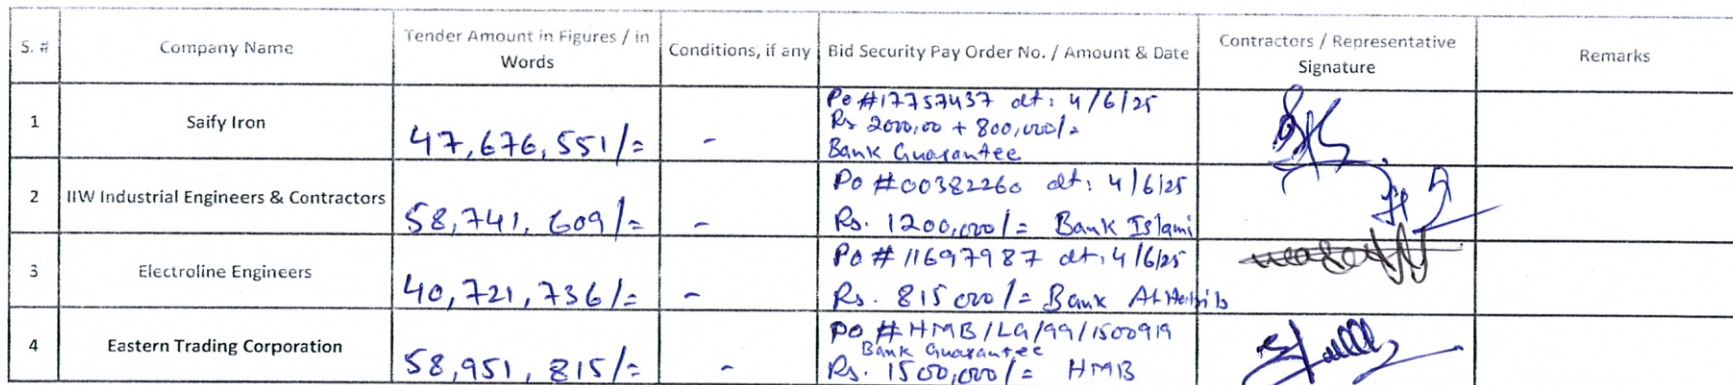 S. # Company Name Tender Amount in Figures / in Words Conditions, if any Bid Security Pay Order No. / Amount & Date Contractors / Representative Signature Remarks
1 Saify Iron 47,676,551/= - Po #17757437 dt: 4/6/25
Rs 2000,00 + 800,000/=
Bank Guarantee
2 IIW Industrial Engineers & Contractors 58,741,609/= - Po #00382260 dt: 4/6/25
Rs. 1200,000/= Bank Islami
3 Electroline Engineers 40,721,736/= - Po # 11697987 dt: 4/6/25
Rs. 815000/= Bank Al Habib
4 Eastern Trading Corporation 58,951,815/= - Po # HMB/LG/99/1500919
Bank Guarantee
Rs. 1500,000/= HMB